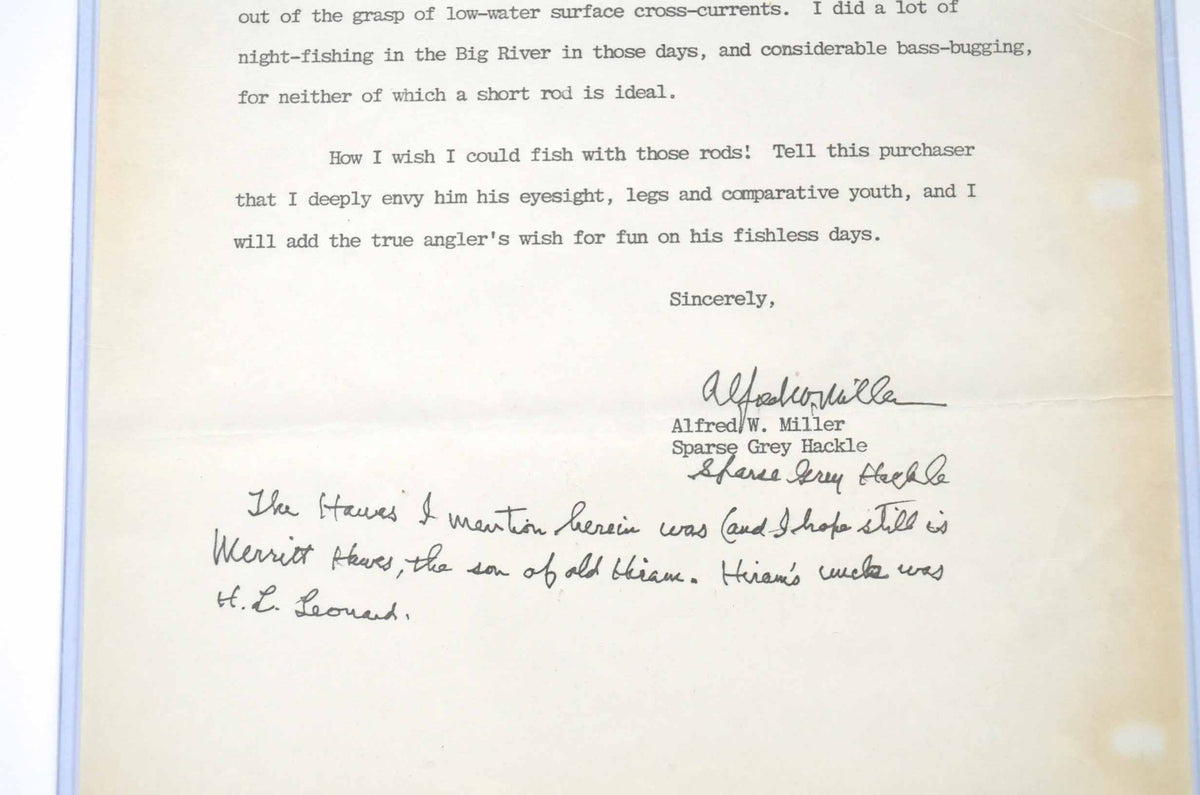 out of the grasp of low-water surface cross-currents.  I did a lot of
night-fishing in the Big River in those days, and considerable bass-bugging,
for neither of which a short rod is ideal.
How I wish I could fish with those rods!  Tell this purchaser
that I deeply envy him his eyesight, legs and comparative youth, and I
will add the true angler's wish for fun on his fishless days.
Sincerely,
Alfred W. Miller
Alfred W. Miller
Sparse Grey Hackle
Sparse Grey Hackle
The Hawes I mention herein was (and I hope still is
Merritt Hawes, the son of old Hiram. Hiram's uncle was
H. L. Leonard.